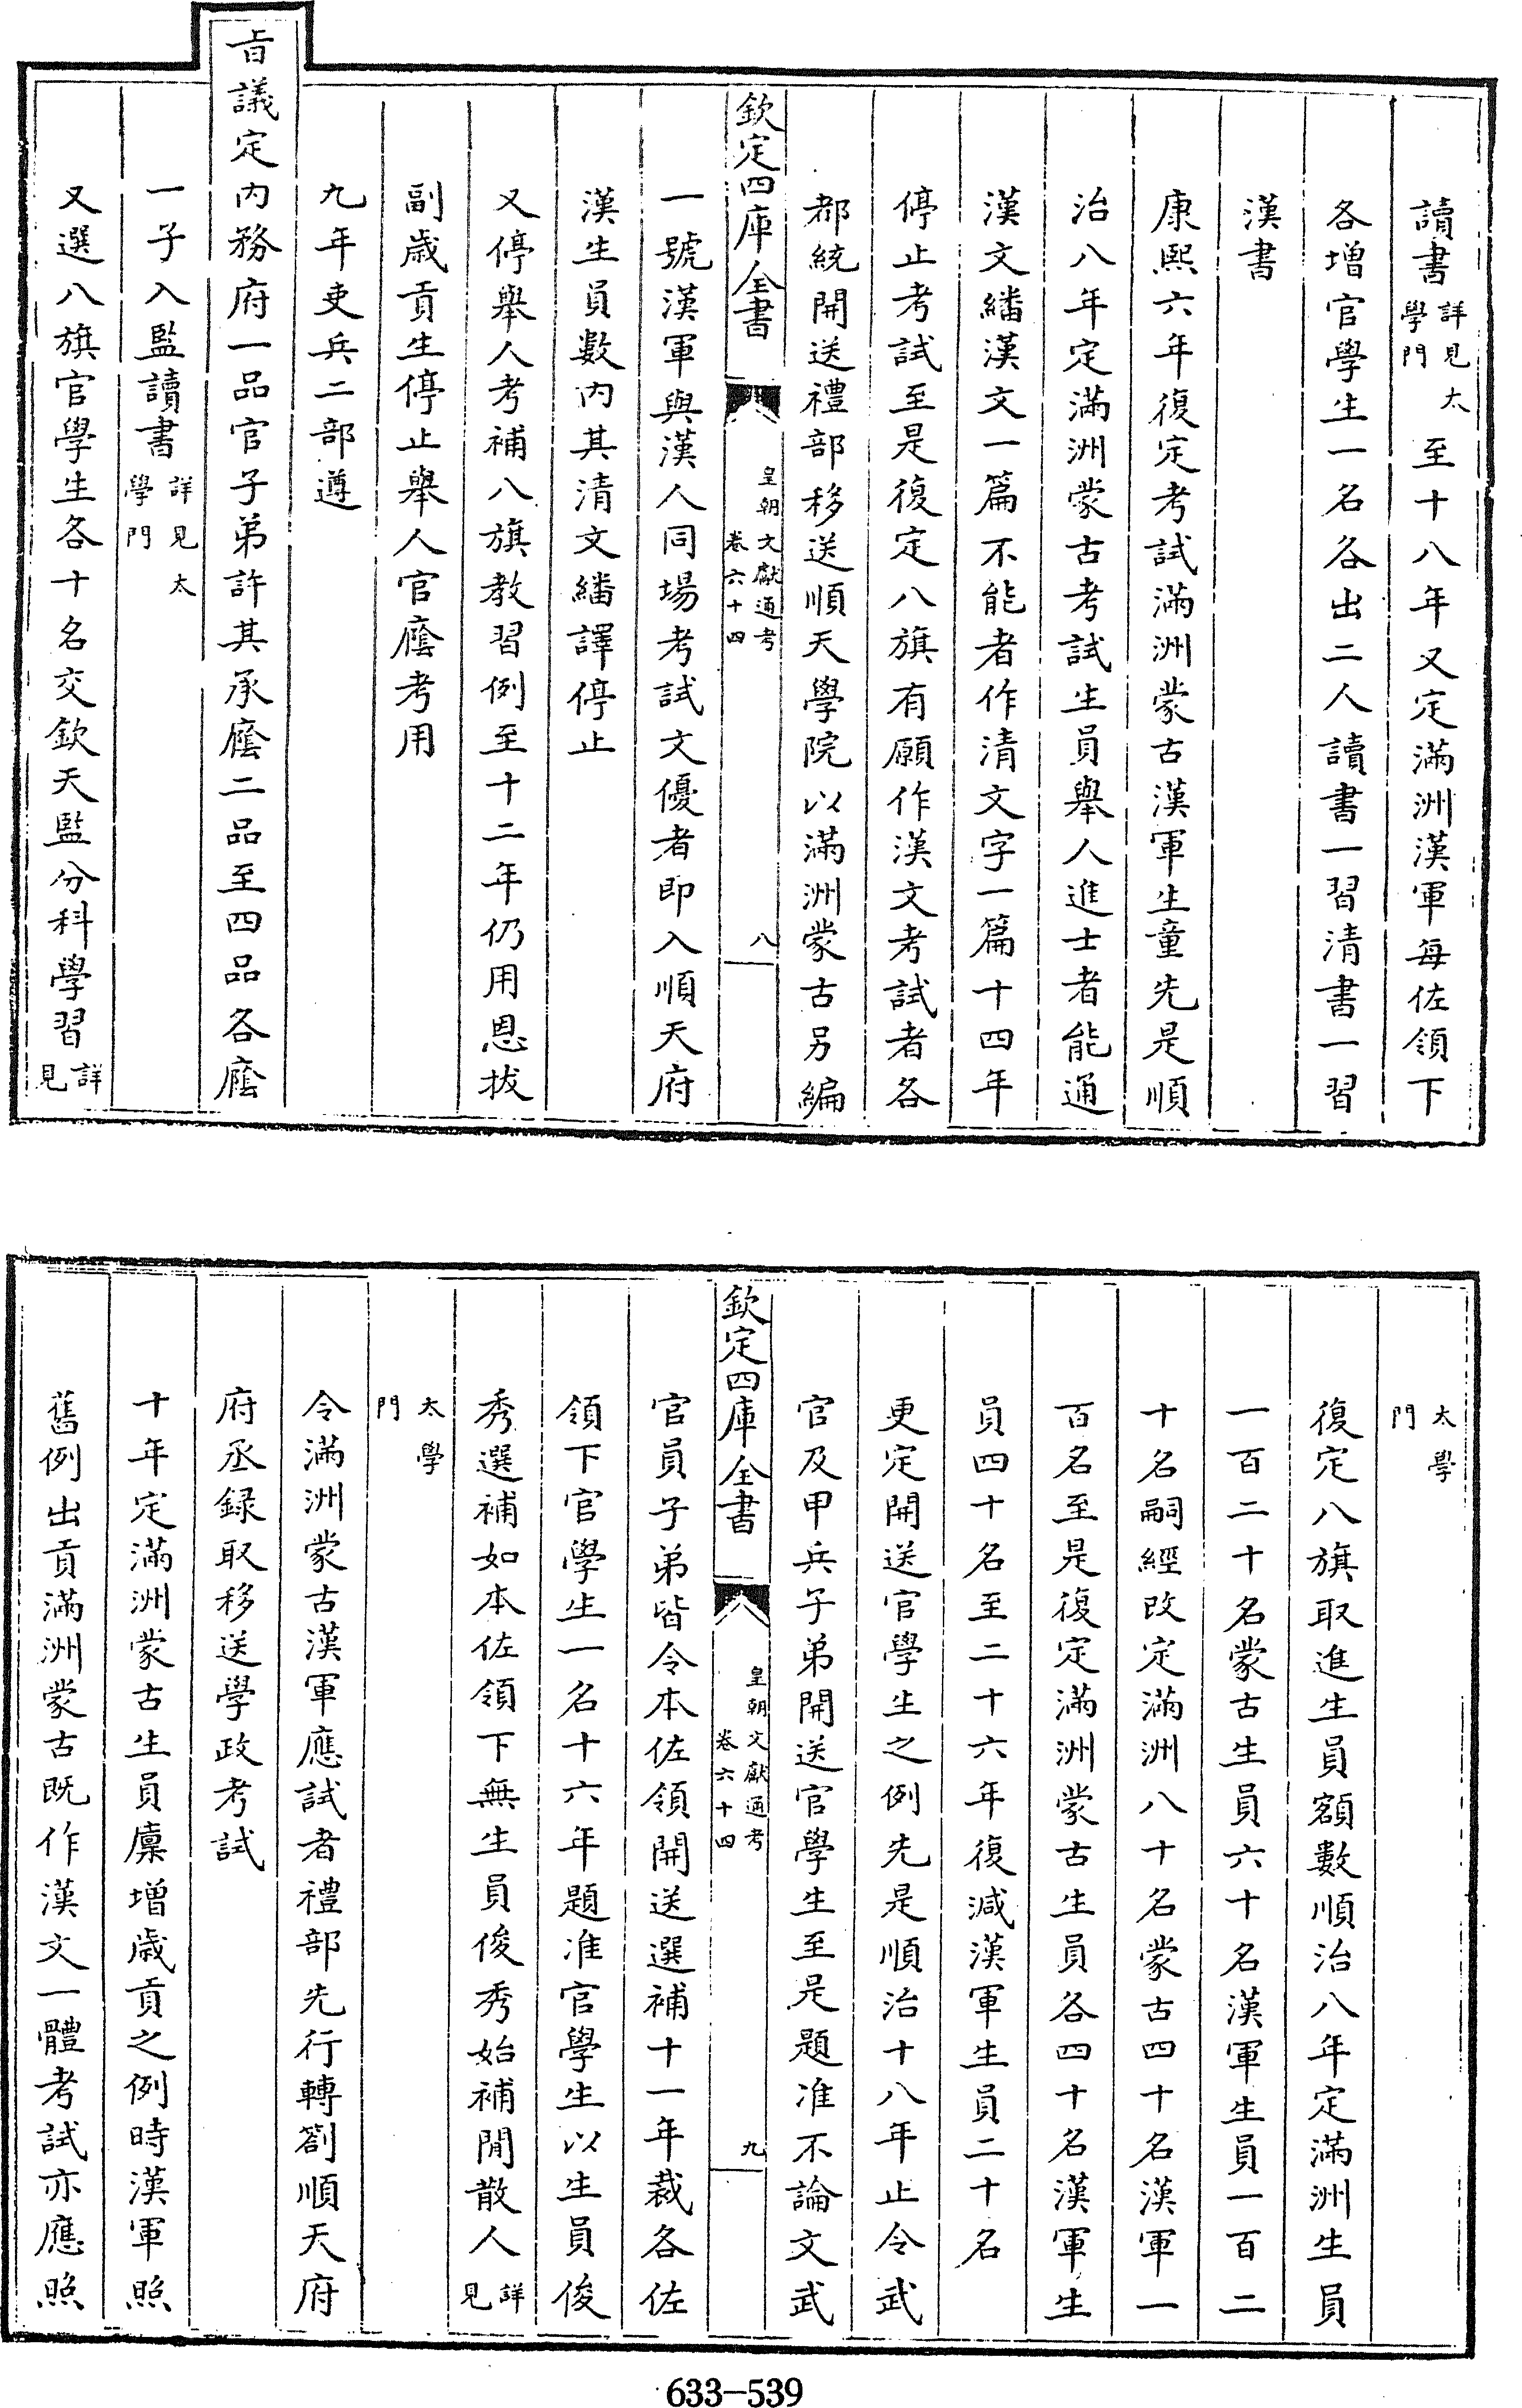 讀書詳見太學門至十八年又定滿洲漢軍每佐領下
各增官學生一名各出二人讀書一習清書一習
漢書
康熙六年復定考試滿洲蒙古漢軍生童先是順
治八年定滿洲蒙古考試生員舉人進士者能通
漢文繙漢文一篇不能者作清文字一篇十四年
停止考試至是復定八旗有願作漢文考試者各
都統開送禮部移送順天學院以滿洲蒙古另編
欽定四庫全書
皇朝文獻通考
卷六十四
八
一號漢軍與漢人同場考試文優者即入順天府
漢生員數內其清文繙譯停止
又停舉人考補八旗教習例至十二年仍用恩拔
副歲貢生停止舉人官廕考用
九年吏兵二部遵
旨議定內務府一品官子弟許其承廕二品至四品各廕
一子入監讀書詳見太學門
又選八旗官學生各十名交欽天監分科學習詳見
太學門
復定八旗取進生員額數順治八年定滿洲生員
一百二十名蒙古生員六十名漢軍生員一百二
十名嗣經改定滿洲八十名蒙古四十名漢軍一
百名至是復定滿洲蒙古生員各四十名漢軍生
員四十名至二十六年復減漢軍生員二十名
更定開送官學生之例先是順治十八年止令武
官及甲兵子弟開送官學生至是題准不論文武
欽定四庫全書
皇朝文獻通考
卷六十四
九
官員子弟皆令本佐領開送選補十一年裁各佐
領下官學生一名十六年題准官學生以生員俊
秀選補如本佐領下無生員俊秀始補閒散人詳見
太學門
令滿洲蒙古漢軍應試者禮部先行轉劄順天府
府丞録取移送學政考試
十年定滿洲蒙古生員廩增歲貢之例時漢軍照
舊例出貢滿洲蒙古既作漢文一體考試亦應照
633-539